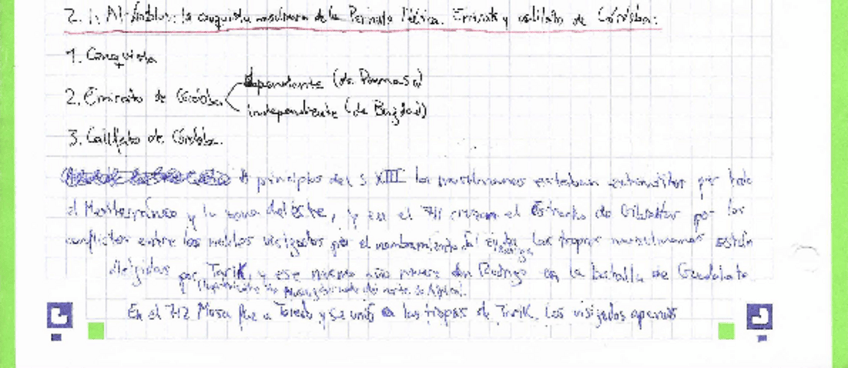 2.1. Al-Ándalus: la conquista musulmana de la Península Ibérica. Emirato y califato de Córdoba:
1. Conquista
2. Emirato de Córdoba dependiente (de Damasco)
independiente (de Bagdad)
3. Califato de Córdoba.
A principios del s. XIII los musulmanes estaban extendidos por todo
el Mediterráneo y la zona del este, y en el 711 cruzan el Estrecho de Gibraltar por los
conflictos entre los nobles visigodos por el nombramiento del Las tropas musulmanas están
dirigidas por Tarik, y ese mismo año muere don Rodrigo en la batalla de Guadalete
del norte de África.
En el 712 Musa fue a Toledo y se unió a las tropas de Tarik. Los visigodos apenas